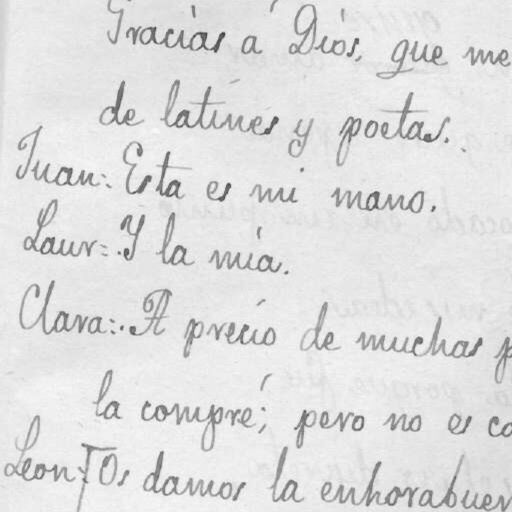 Gracias a Dios, que me
de latines y poetas.
Juan: Esta es mi mano.
Laur= Y la mía.
Clara: A precio de muchas
la compré; pero no es
Leon: Os damos la